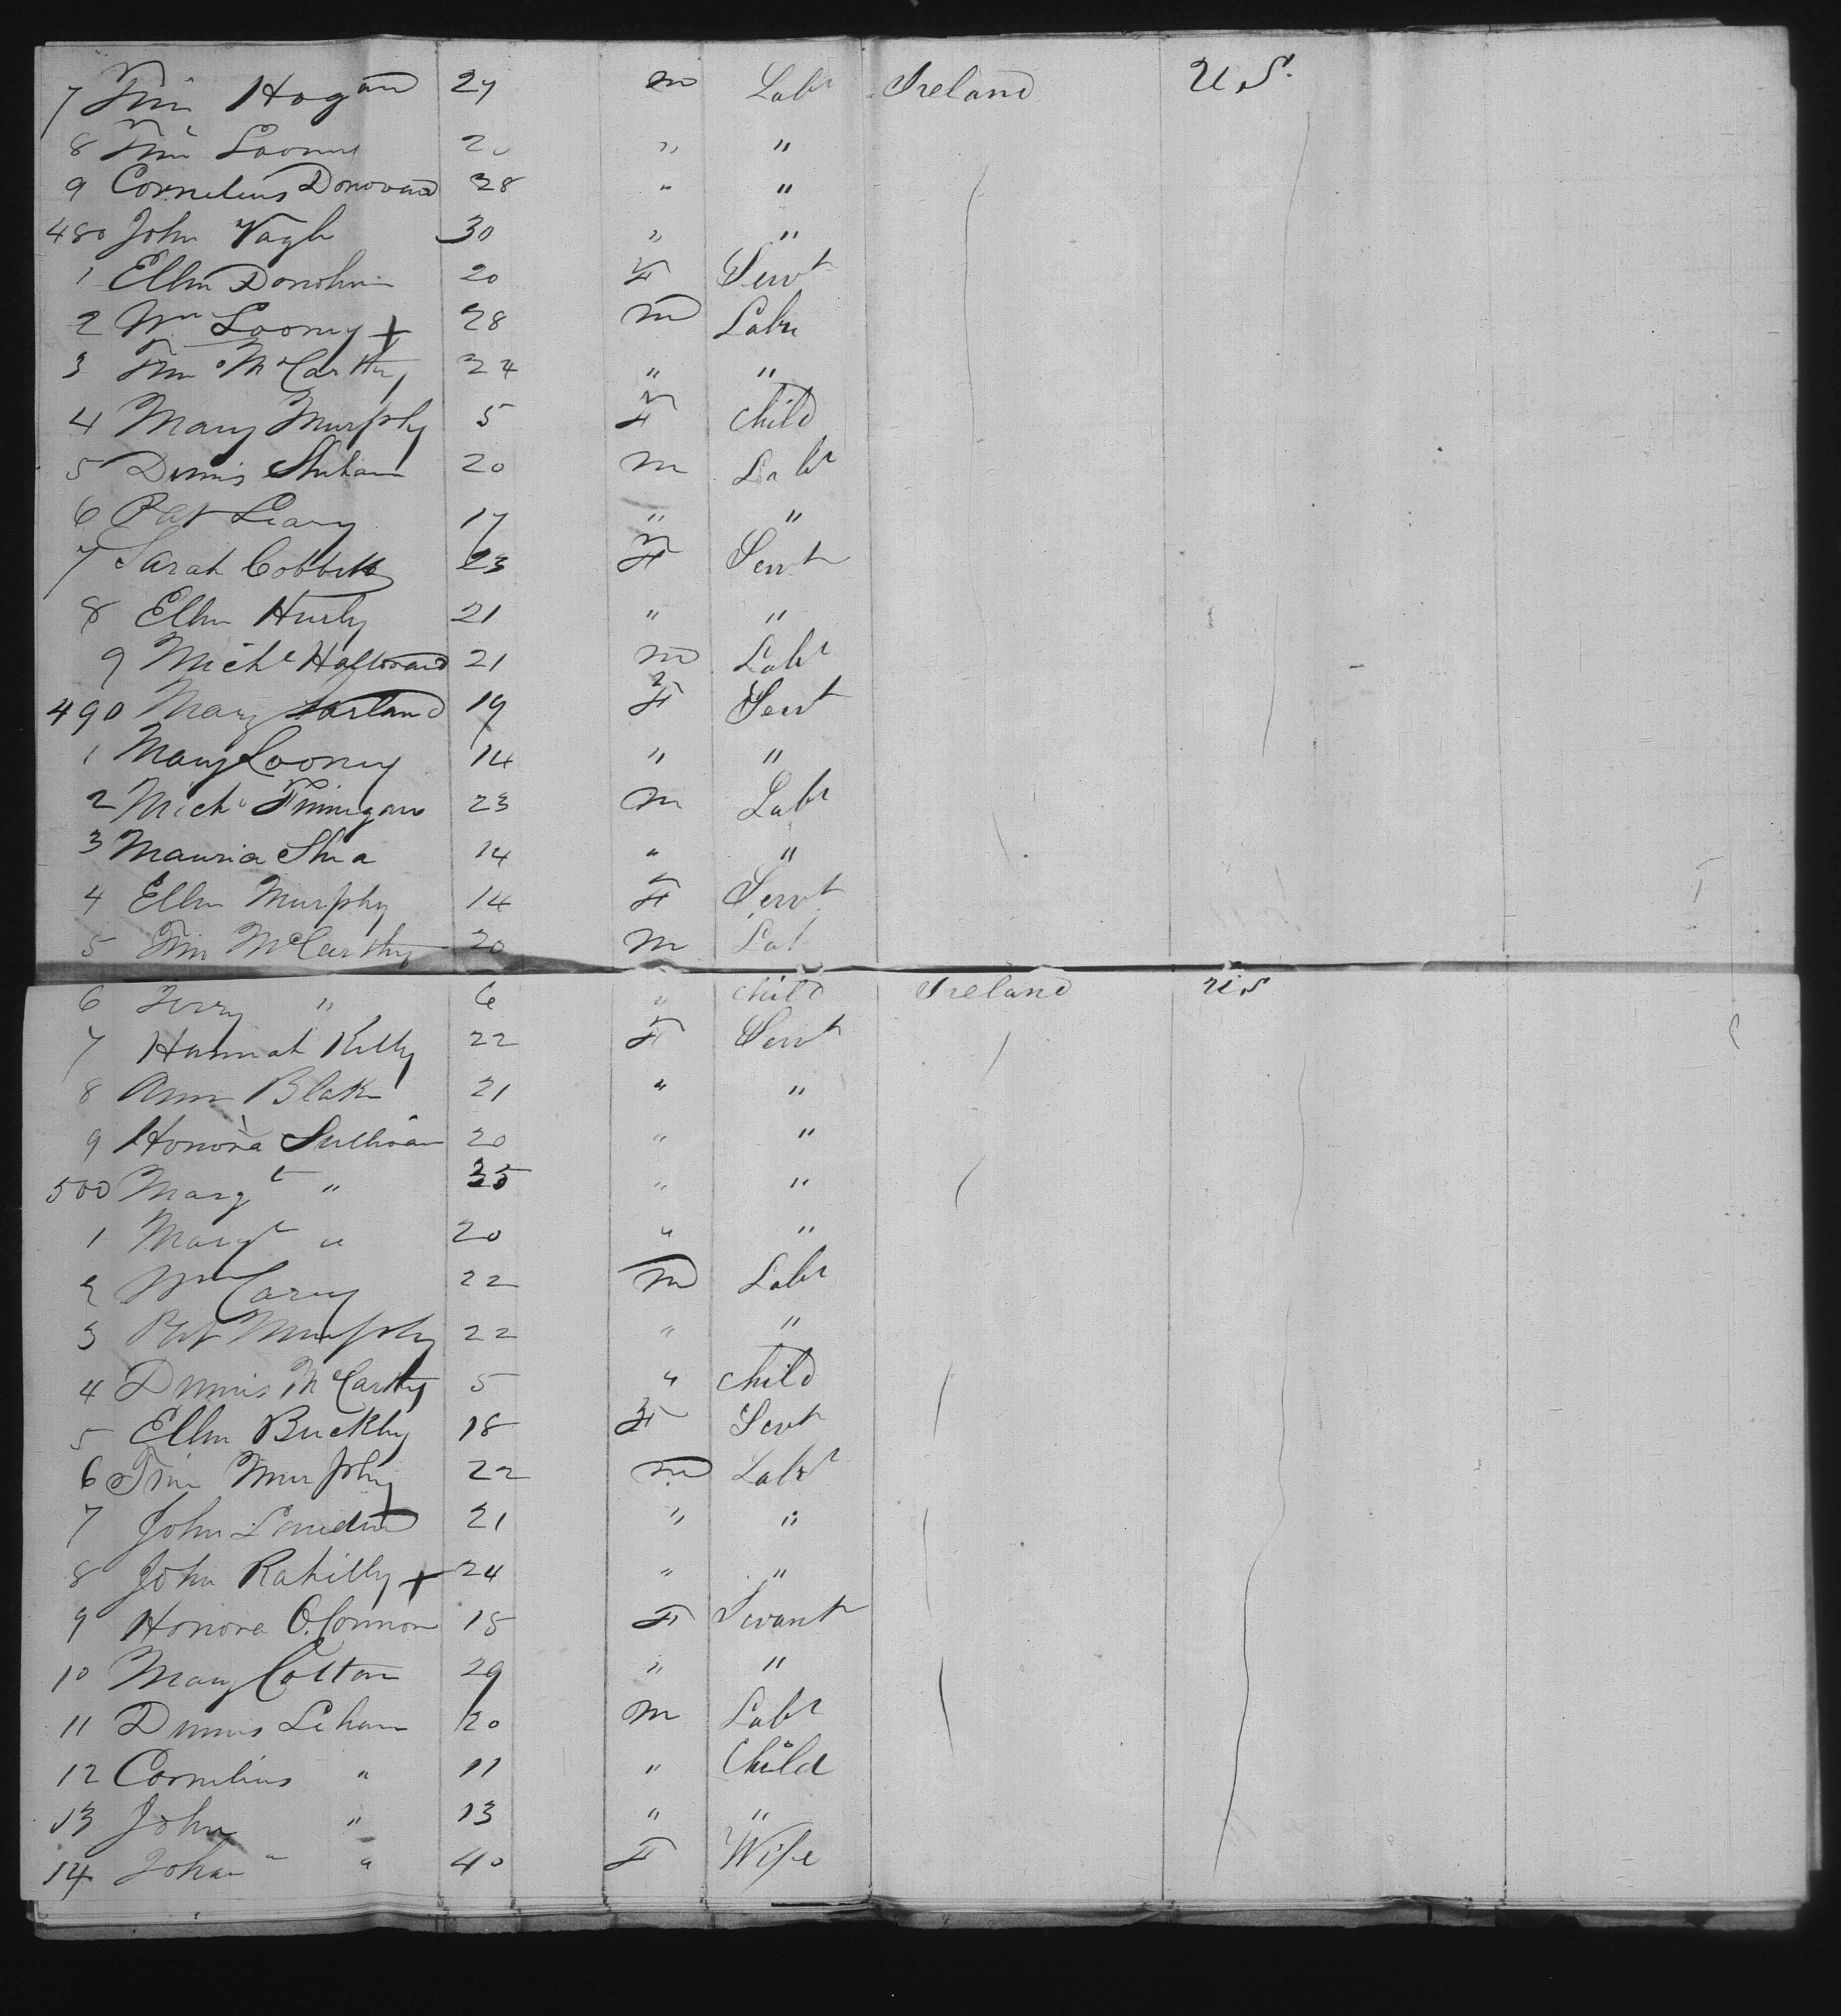 7 Tim Hogan 27 m Labr Ireland U.S.
8 Tim Looney 20 " "
9 Cornelius Donovan 28 " "
480 John Nagle 30 " "
1 Ellen Donohue 20 F Servt
2 Wm Looney + 28 m Labr
3 Tim McCarthy 24 " "
4 Mary Murphy 5 F child
5 Dennis Shehan 20 m Labr
6 Pat Leary 17 " "
7 Sarah 23 F Servt
8 Ellen Hurly 21 " "
9 Michl Halloran 21 m Labr
490 Mary 19 F Servt
1 Mary Looney 14 " "
2 Michl Finnigan 23 m Labr
3 Maurice Shea 14 " "
4 Ellen Murphy 14 F Servt
5 Tim McCarthy 20 m Lab
6 Jerry " 6 " child Ireland U.S
7 Hannah Kelly 22 F Servt
8 Ann Blake 21 " "
9 Honora Sullivan 20 " "
500 Margt " 25 " "
1 Margt " 20 " "
2 Wm Carey 22 m Labr
3 Pat Murphy 22 " "
4 Dennis McCarthy 5 " child
5 Ellen Buckley 18 F Servt
6 Tim Murphy 22 m Labr
7 John 21 " "
8 John Rahilly + 24 " "
9 Honora O.Connor 18 F Servant
10 Mary Cotton 29 " "
11 Dennis Lehane 20 m Labr
12 Cornelius " 11 " Child
13 John " 13 " "
14 Johan " 40 F Wife